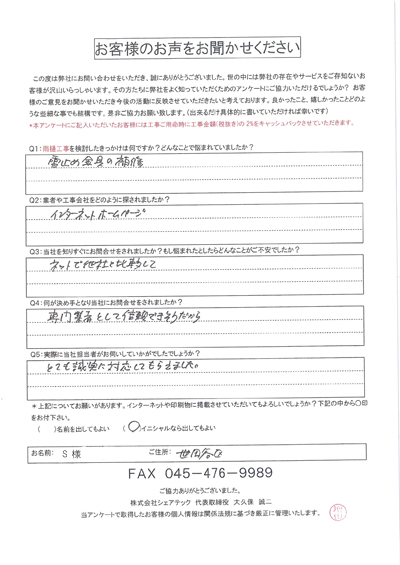 お客様のお声をお聞かせください
この度は弊社にお問い合わせをいただき、誠にありがとうございました。世の中には弊社の存在やサービスをご存知ないお
客様が沢山いらっしゃいます。その方たちに弊社をよく知っていただくためのアンケートにご協力いただけるでしょうか？お客
様のご意見をお聞かせいただき今後の活動に反映させていただきたいと考えております。良かったこと、嬉しかったことどのよ
うな些細な事でも結構です。是非ご協力お願い致します。（出来るだけ具体的に書いていただければ幸いです）
*本アンケートにご記入いただいたお客様には工事ご用命時に工事金額(税抜き)の2%をキャッシュバックさせていただきます。
Q1:雨樋工事を検討したきっかけは何ですか？どんなことで悩まれていましたか？
雪止め金具の補修
Q2:業者や工事会社をどのように探されましたか？
インターネットホームページ
Q3:当社を知りすぐにお問合せをされましたか？もし悩まれたとしたらどんなことがご不安でしたか？
ネットで他社と比較して
Q4:何が決め手となり当社にお問合せをされましたか？
専門業者として信頼できそうだから
Q5:実際に当社担当者がお伺いしていかがでしたでしょうか？
とても誠実に対応してもらえました。
*上記についてお願いがあります。インターネットや印刷物に掲載させていただいてもよろしいでしょうか？下記の中から○印
をお付下さい。
( )名前を出してもよい (○)イニシャルなら出してもよい
お名前: S 様 ご住所: 世田谷区
FAX 045-476-9989
ご協力ありがとうございました。
株式会社シェアテック 代表取締役 大久保 誠二
当アンケートで取得したお客様の個人情報は関係法規に基づき厳正に管理いたします。